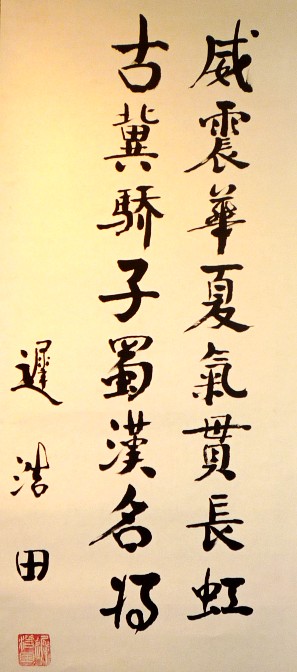 威震華夏氣貫長虹
古冀驕子蜀漢名将
遲浩田